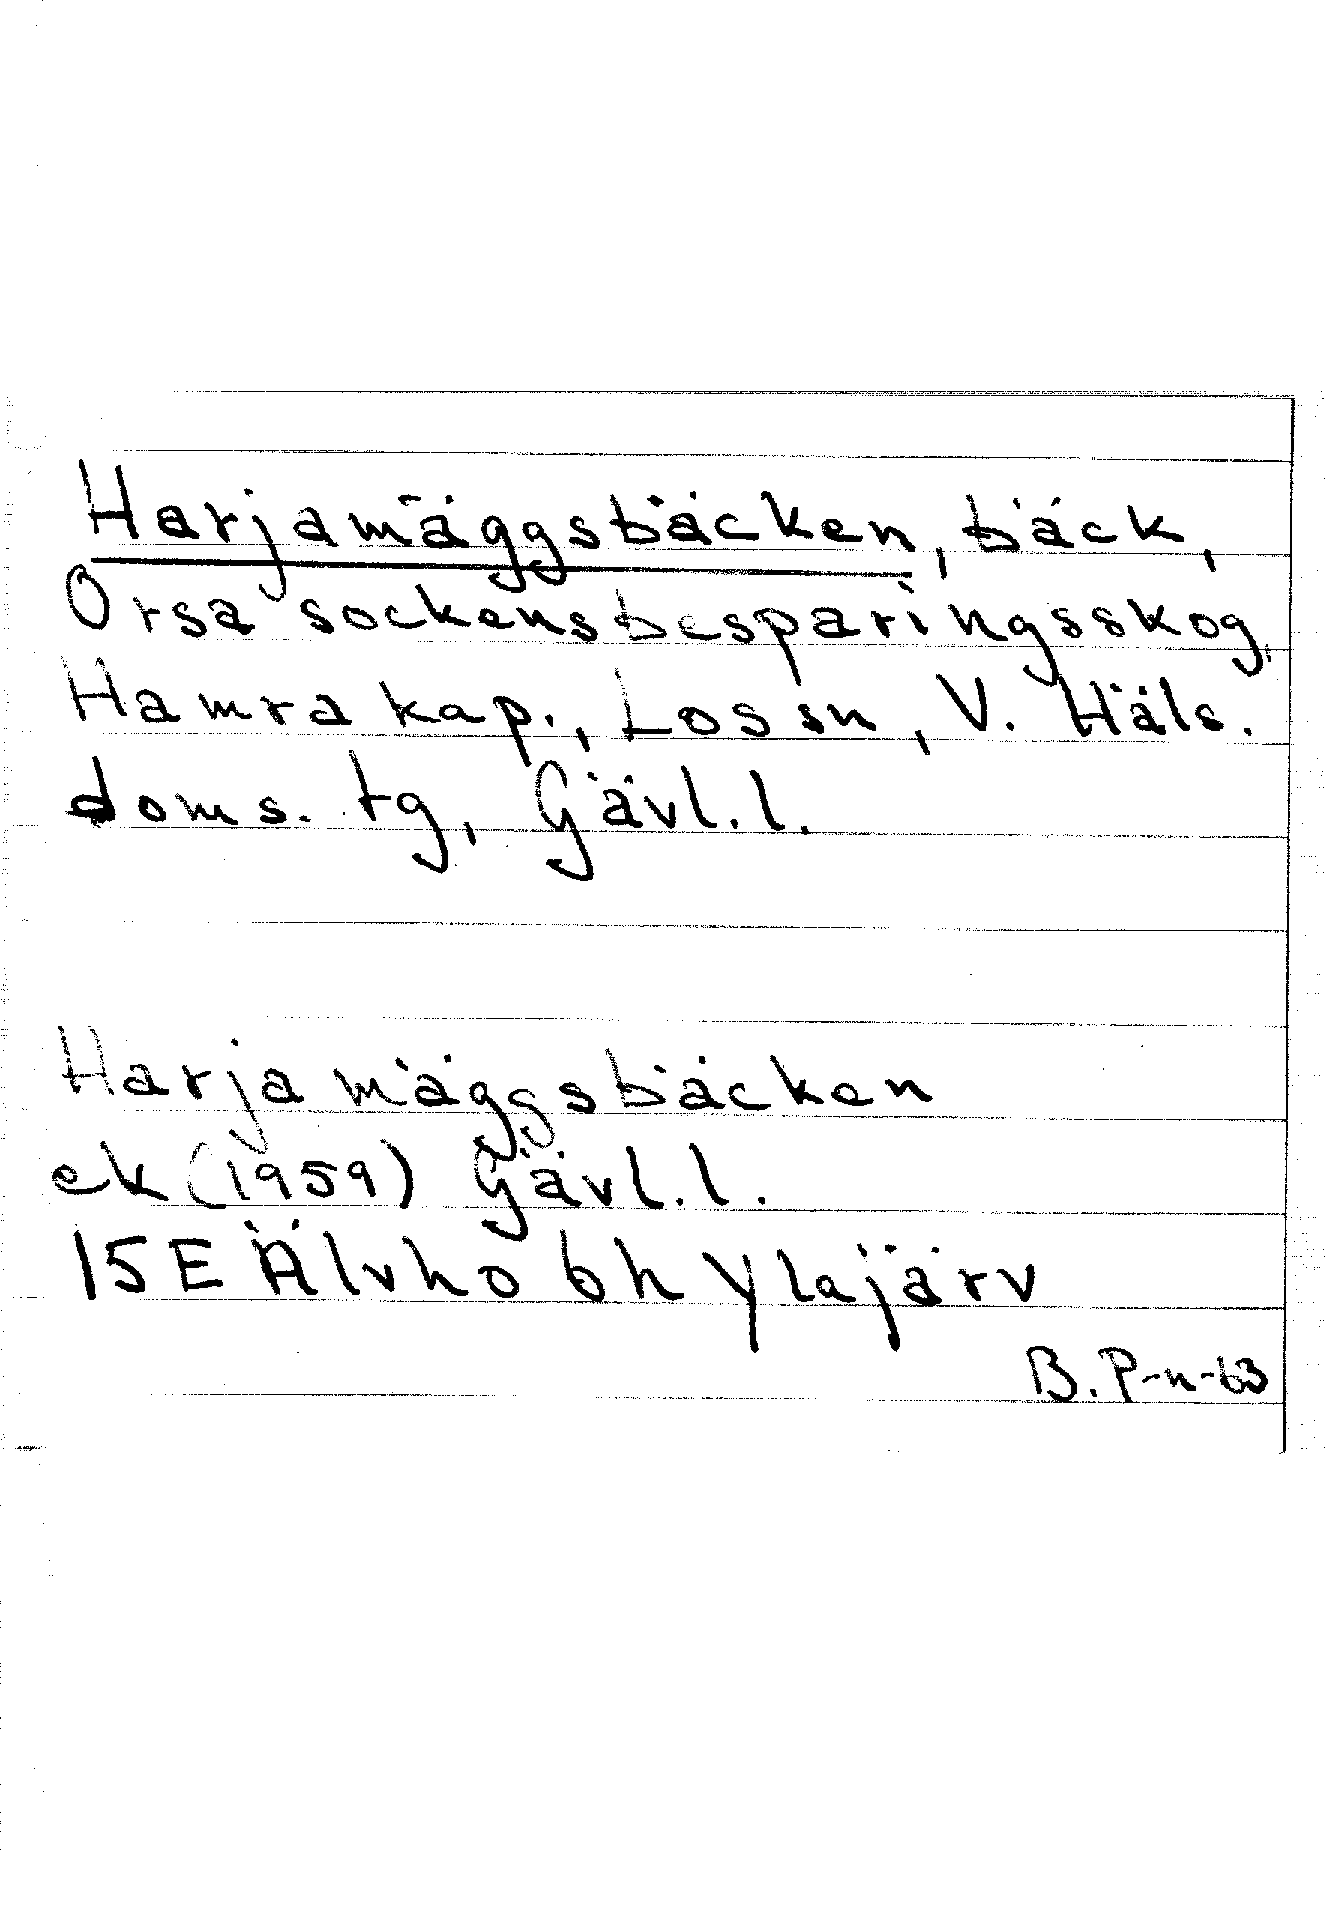 Harjamäggsbäcken, bäck,
Orsa sockensbesparingsskog,
Hamra kap., Los sn, V. Häls.
doms. tg, Gävl. l.
Harjamäggsbäcken
ek (1959) Gävl. l.
15 E Älvho bh Ylajärv
B. P-n-63